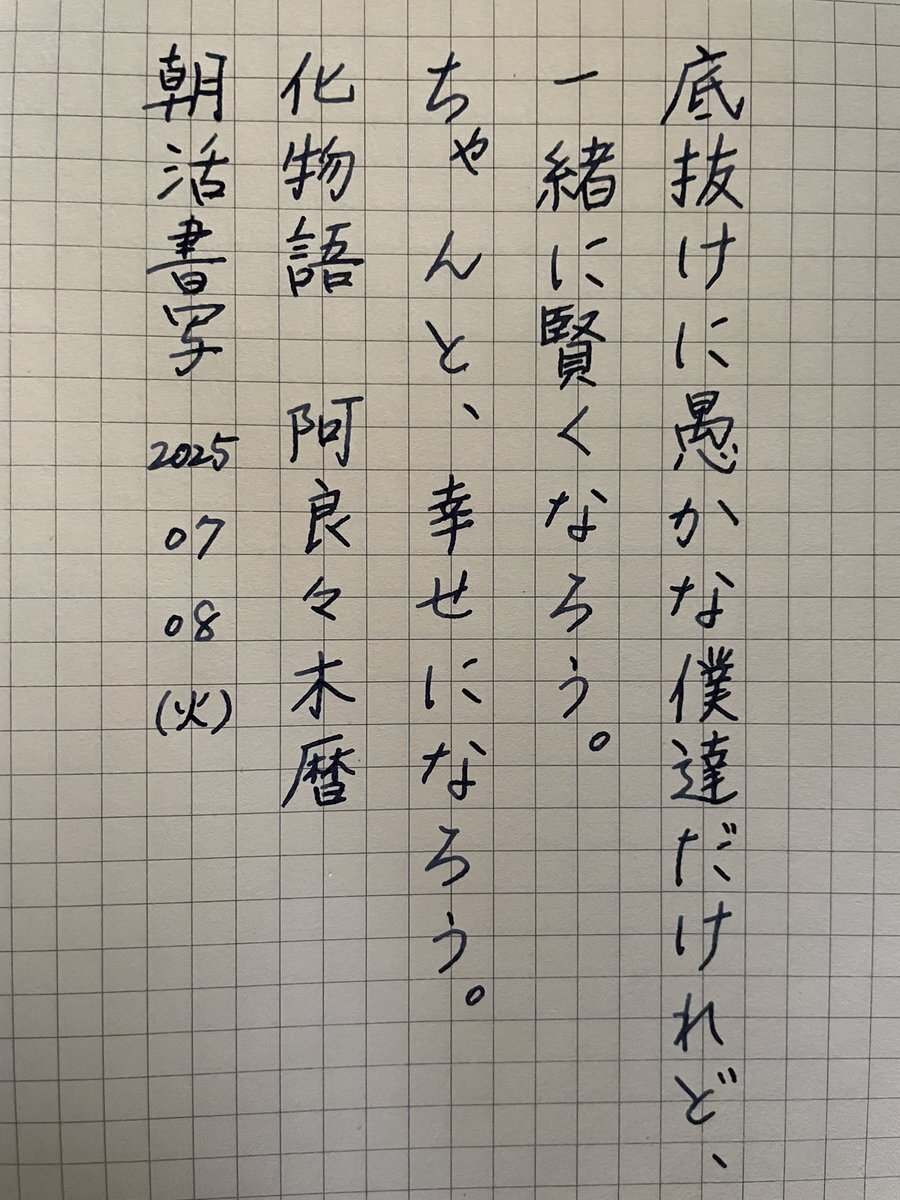 底抜けに愚かな僕達だけれど、
一緒に賢くなろう。
ちゃんと、幸せになろう。
化物語 阿良々木暦
朝活書写 2025 07 08 (火)